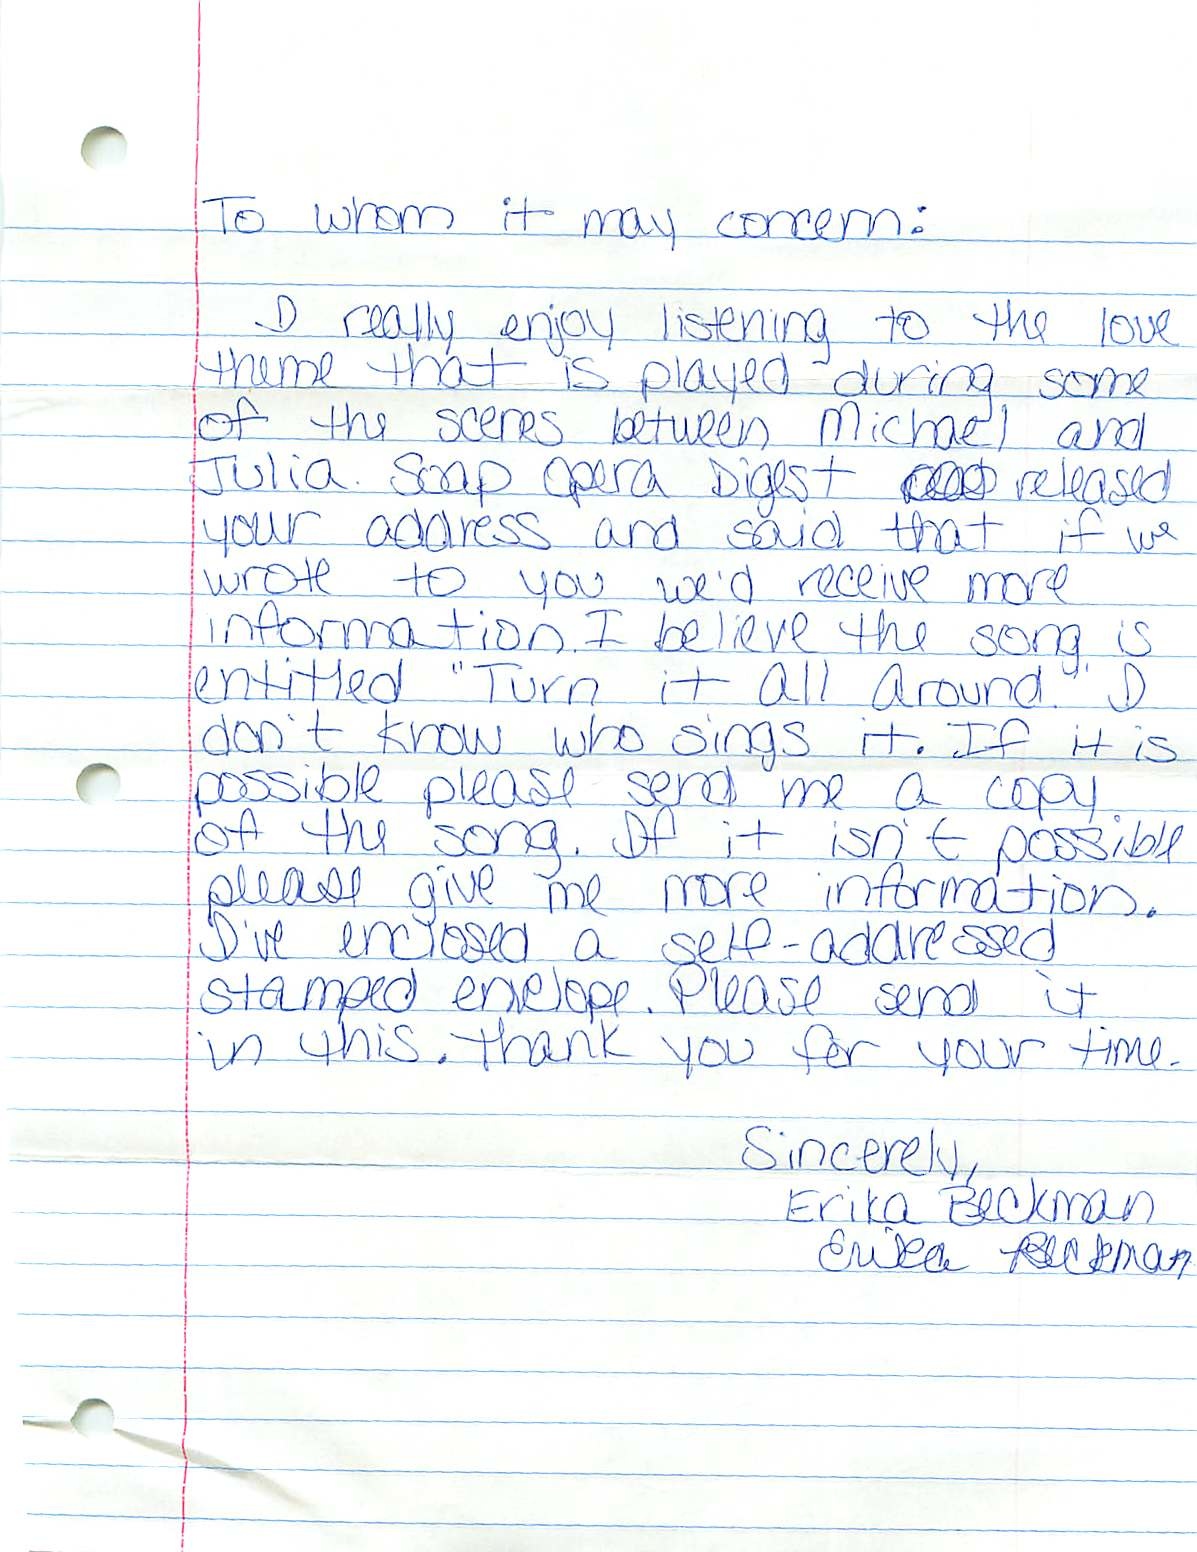 To whom it may concern:
I really enjoy listening to the love
theme that is played during some
of the scenes between Michael and
Julia. Soap Opera Digest released
your address and said that if we
wrote to you we'd receive more
information. I believe the song is
entitled "Turn it all around." I
don't know who sings it. If it is
possible please send me a copy
of the song. If it isn't possible
please give me more information.
I've enclosed a self-addressed
stamped envelope. Please send it
in this. Thank you for your time.
Sincerely,
Erika Beckman
Erika Beckman